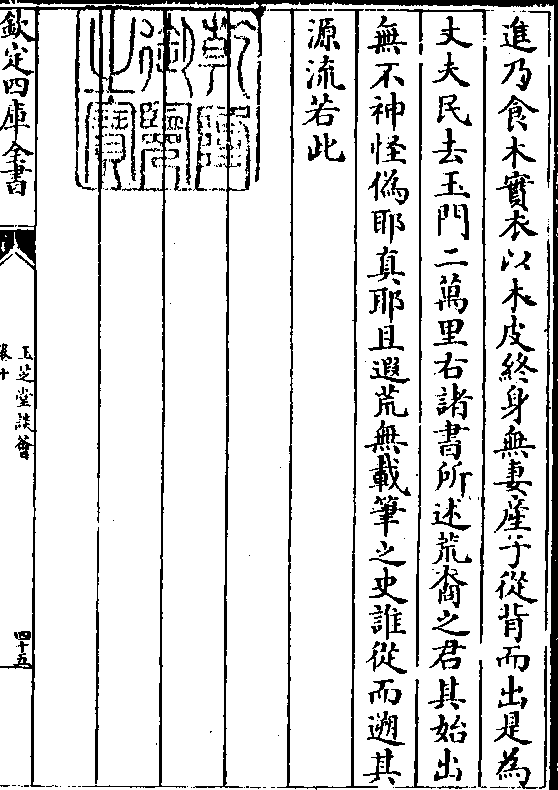 進乃食木實衣以木皮終身無妻産子從背而出是為
丈夫民去玉門二萬里右諸書所述荒裔之君其始出
無不神怪偽耶真耶且遐荒無載筆之史誰從而遡其
源流若此
乾隆
御覽
之寶
欽定四庫全書
玉芝堂談薈
卷十
四十五